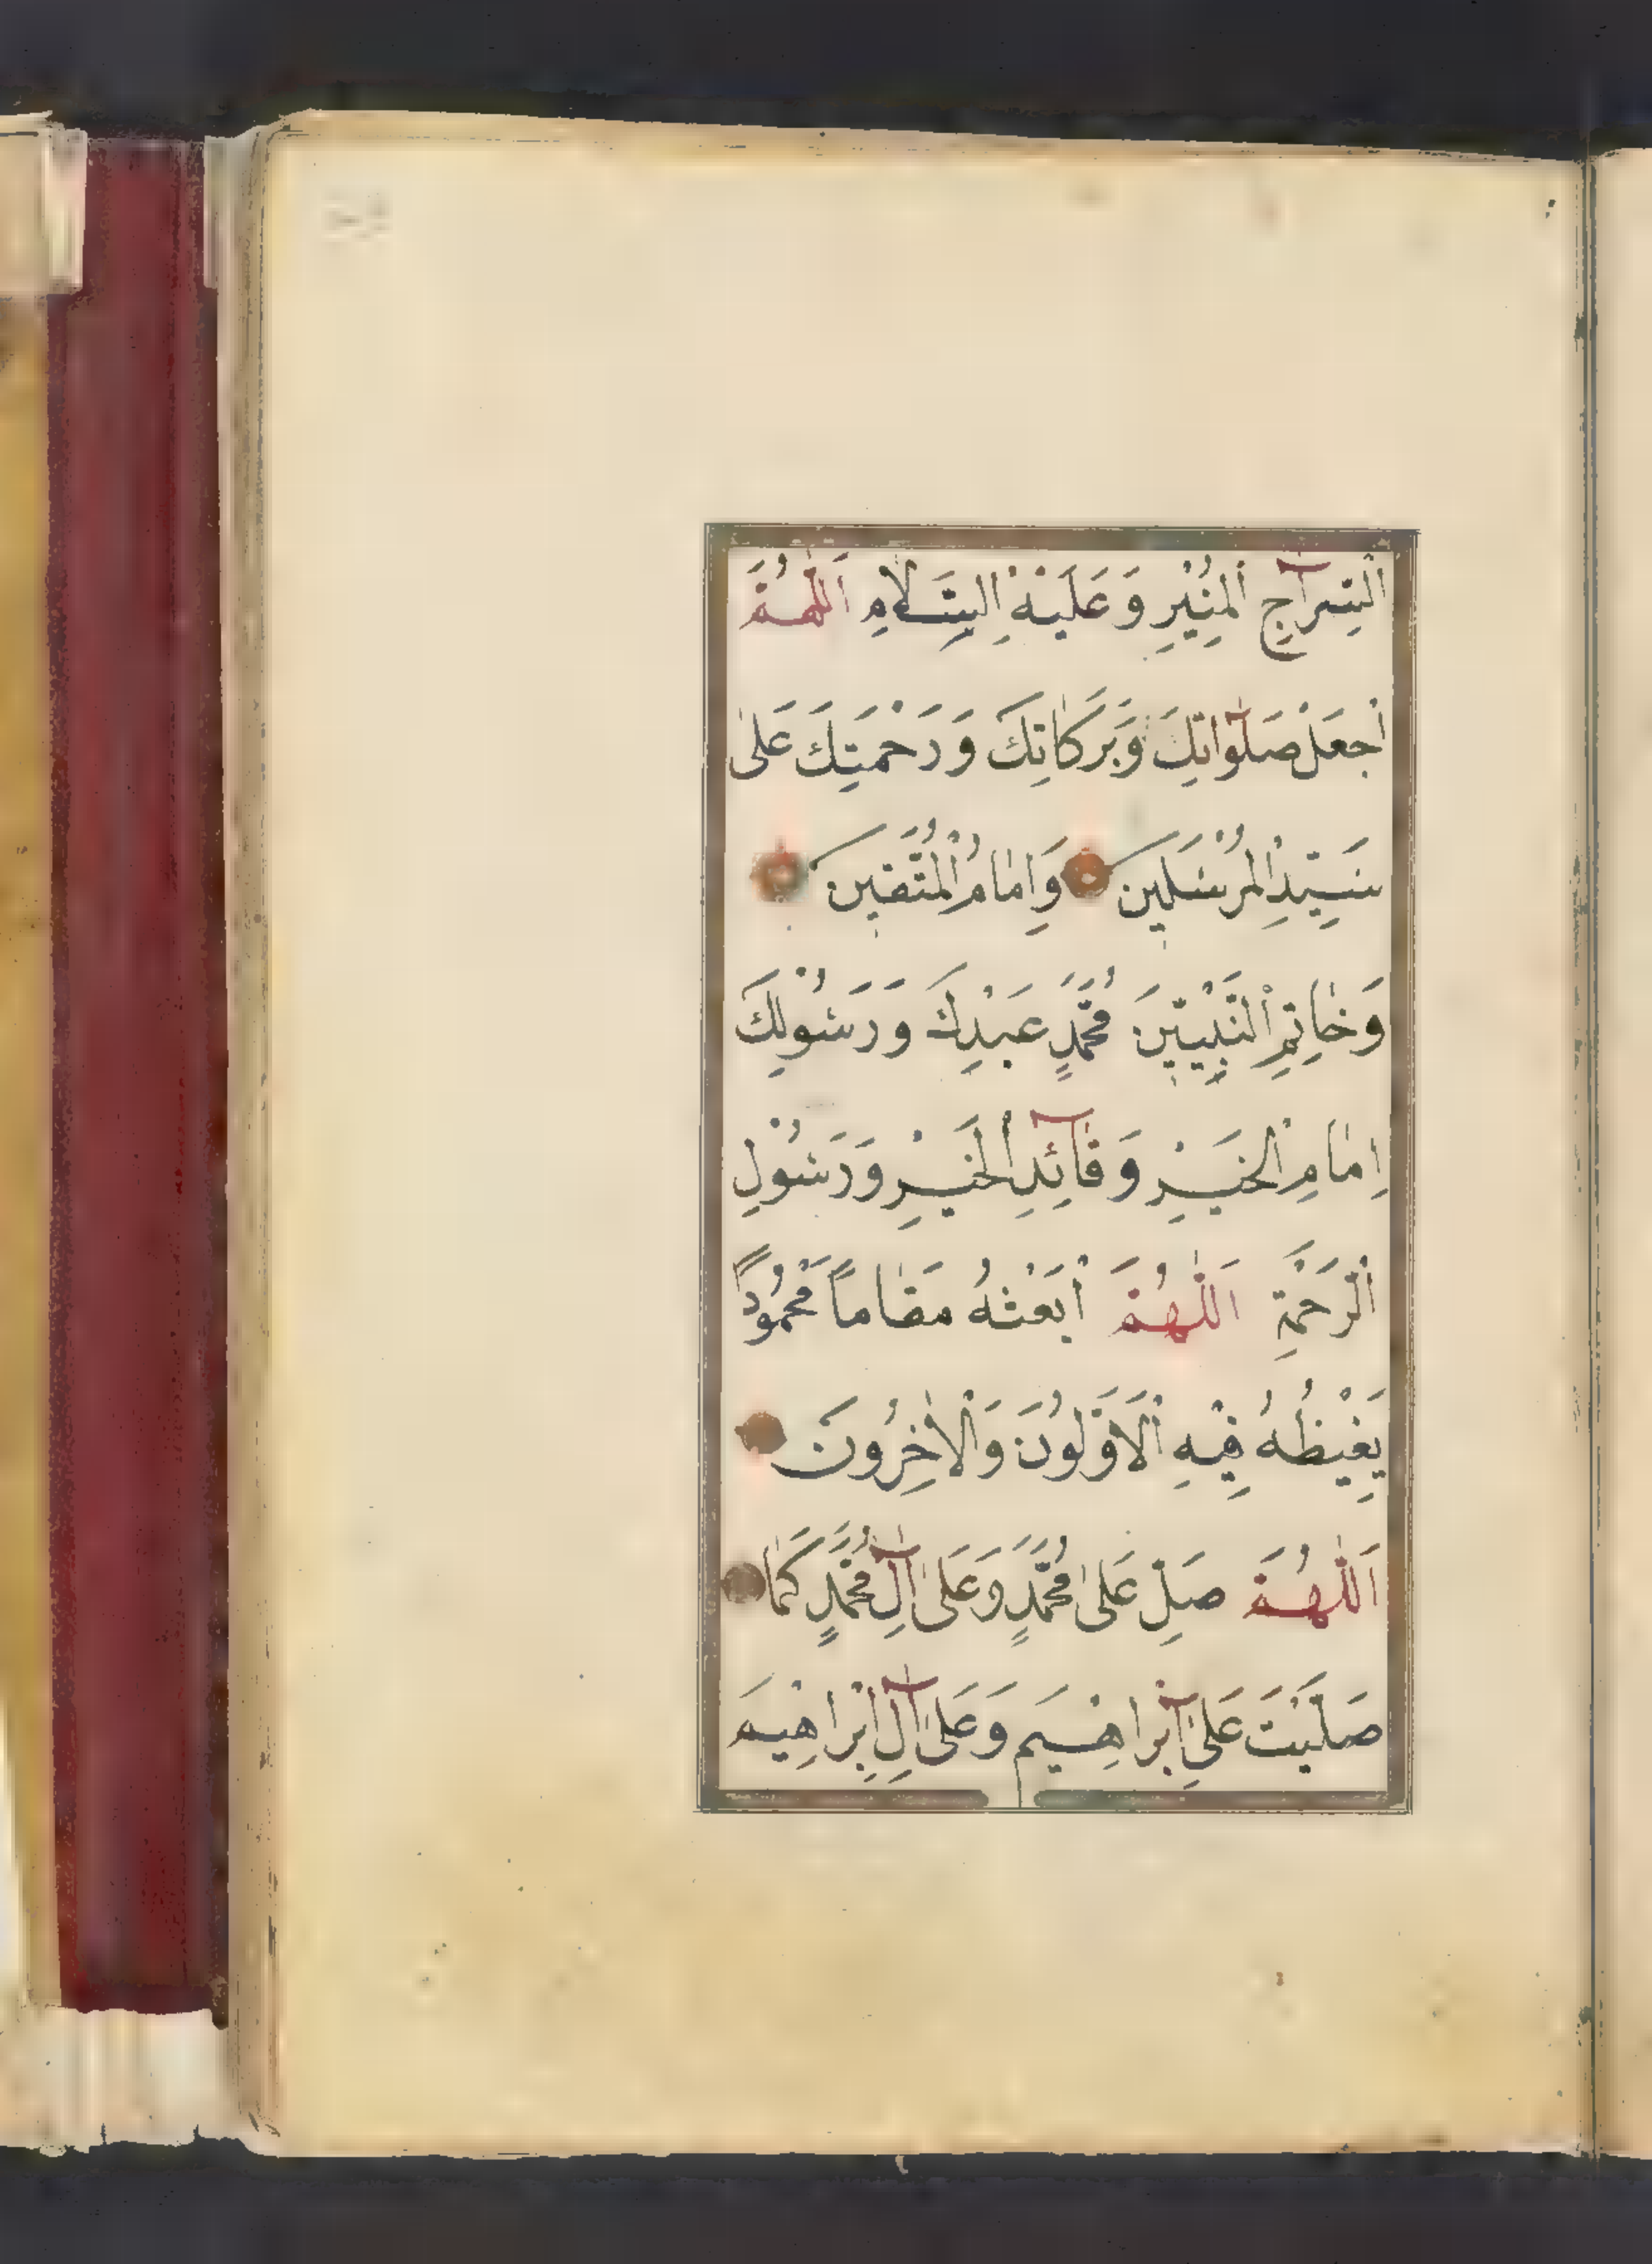 اَلسِّرَاجِ الْمُنِيْرِ وَعَلَيْهِ السَّلَامِ اَللّٰهُمَّ
اجْعَلْ صَلَوَاتِكَ وَبَرَكَاتِكَ وَرَحْمَتِكَ عَلٰى
سَيِّدِ الْمُرْسَلِينَ وَاِمَامِ الْمُتَّقِينَ
وَخَاتِمِ النَّبِيِّينَ مُحَمَّدٍ عَبْدِكَ وَرَسُوْلِكَ
اِمَامِ الْخَيْرِ وَقَآئِدِ الْخَيْرِ وَرَسُوْلِ
الرَّحْمَةِ اَللّٰهُمَّ اَبْعَثْهُ مَقَامًا مَحْمُوْدًا
يَغْبِطُهُ فِيْهِ الْاَوَّلُوْنَ وَالْاٰخِرُونَ
اَللّٰهُمَّ صَلِّ عَلٰى مُحَمَّدٍ وَعَلٰى آلِ مُحَمَّدٍ كَمَا
صَلَّيْتَ عَلٰى اِبْرَاهِيْمَ وَعَلٰى آلِ اِبْرَاهِيْمَ